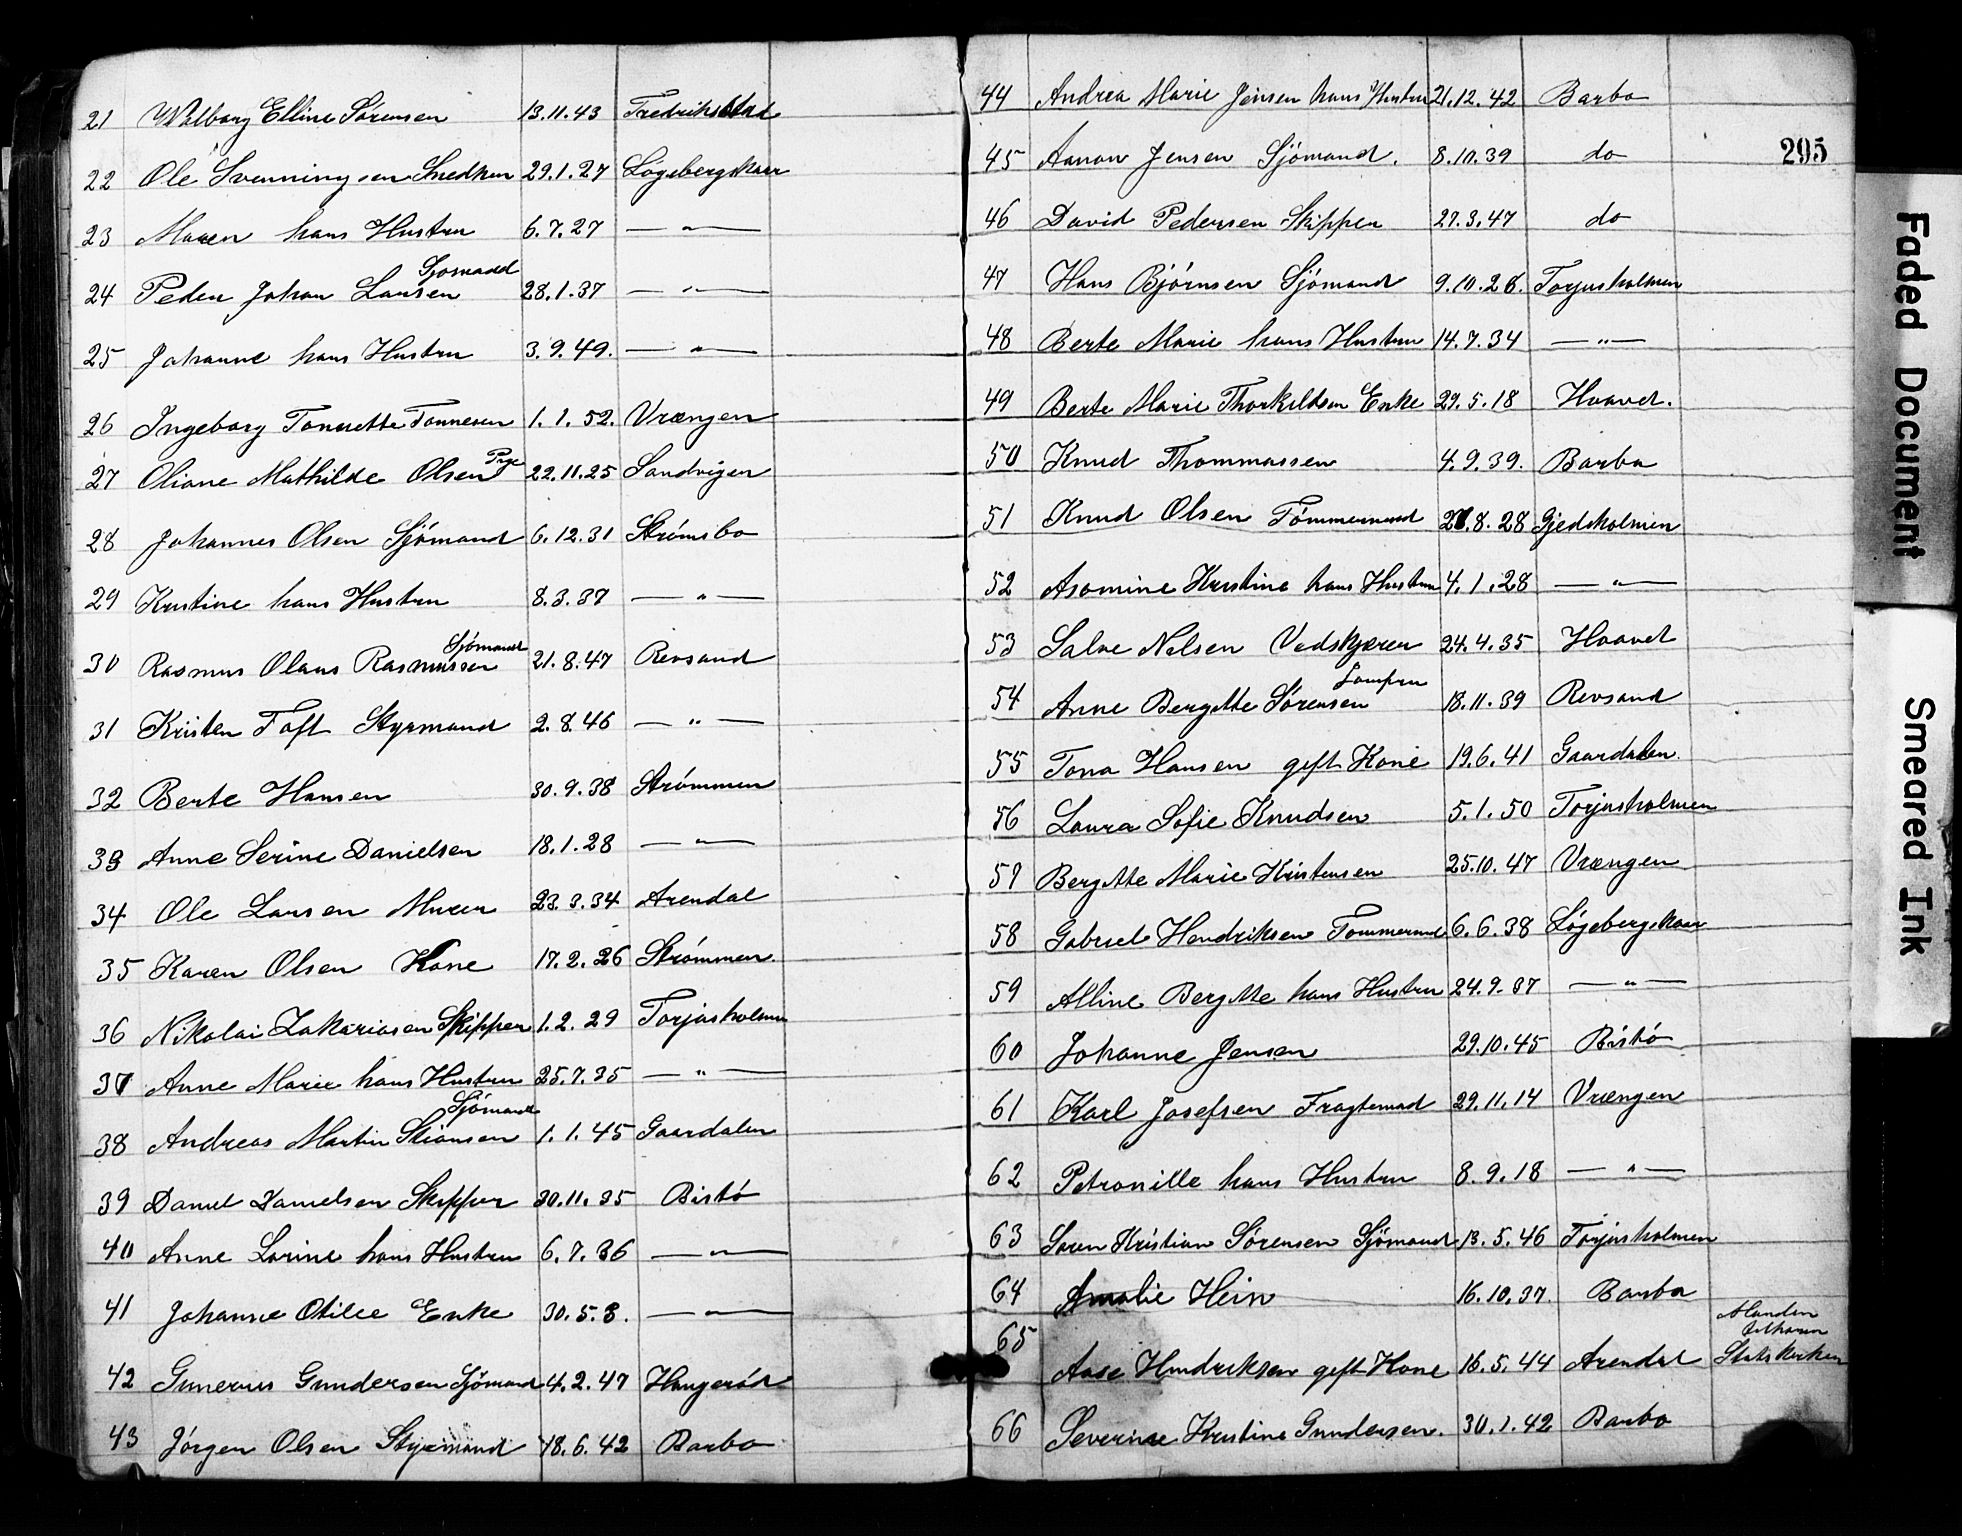 21 Walborg Elline Sørensen 13.11.43 Fredrikstad
22 Ole Svenningsen Snedker 29.1.27 Løgebergskaar
23 Maren hans Hustru 6.7.27 — " —
Sjømand
24 Peder Johan Larsen 28.1.37 — " —
25 Johanne hans Hustru 3.9.49. — " —
26 Ingeborg Tonnette Tonnesen 1.1.52. Vrængen
Pige
27 Oliane Mathilde Olsen 22.11.25 Sandvigen
28 Johannes Olsen Sjömand 6.12.31 Strømsbo
29 Kristine hans Hustru 8.3.37 — " —
Sjømand
30 Rasmus Olaus Rasmussen 21.8.47 Revsand
31 Kristen Toft Styrmand 2.8.46 — " —
32 Berte Hansen 30.9.38 Strømmen
33 Anne Serine Danielsen 18.1.28 — " —
34 Ole Larsen Murer 23.3.34 Arendal
35 Karen Olsen Kone 17.2.26 Strømmen
36 Nikolai Zakariasen Skipper 1.2.29 Torjusholmen
37 Anne Marie hans Hustru 25.7.35 — " —
Sjømand
38 Andreas Martin Stiansen 1.1.45 Gaardalen
39 Daniel Danielsen Skipper 30.11.35 Bistø
40 Anne Lorine hans Hustru 6.7.36 — " —
41 Johanne Otilie Enke 30.5.8. — " —
42 Gunerius Gundersen Sjömand 4.2.47 Haugerød
43 Jørgen Olsen Styrmand 18.6.42 Barbo
44 Andrea Marie Jensen hans Hustru 21.12.42 Barbo
295
45 Aanon Jensen Sjømand. 8.10.39 do
46 David Pedersen Skipper 27.3.47 do
47 Hans Bjørnsen Sjómand 9.10.28. Torjusholmen
48 Berte Marie hans Hustru 14.7.34 — " —
49 Berte Marie Thorkildsen Enke 29.5.18 Hvavet.
50 Knud Thommassen 4.9.39. Barbo
51 Knud Olsen Tømmermand 8.28 Gjedsholmen
52 Asomine Kristine hans Hustru 4.1.28 — " —
53 Salve Nelsen Vedskjærer 24.4.35 Hvavet
54 Anne Bergitte Sørensen 18.11.39 Revsand
55 Tona Hansen gift Kone 19.6.41 Gaardalen.
56 Laura Sofie Knudsen 5.1.50 Torjusholmen
57 Bergitte Marie Kristensen 25.10.47 Vrængen
58 Gabriel Hendriksen Tommermand 6.6.38 Løgebergskaar
59 Alline Bergitte hans Hustru 24.9.37 — " —
60 Johanne Jensen 29.10.45 Bistø
61 Karl Josefsen Fragtemad 29.11.14 Vrængen
62 Petronille hans Hustru 8.9.18 — " —
63 Soren Kristian Sørensen Sjømand 13.5.46 Torjusholmen
64 Amalie Hein 16.10.37. Barbo
Manden
tilhører
65 Aase Hendriksen gift Kone 16.5.44 Arendal Statskirken
66 Severine Kristine Gundersen. 30.1.42 Barbo
Faded Document
Smeared Ink